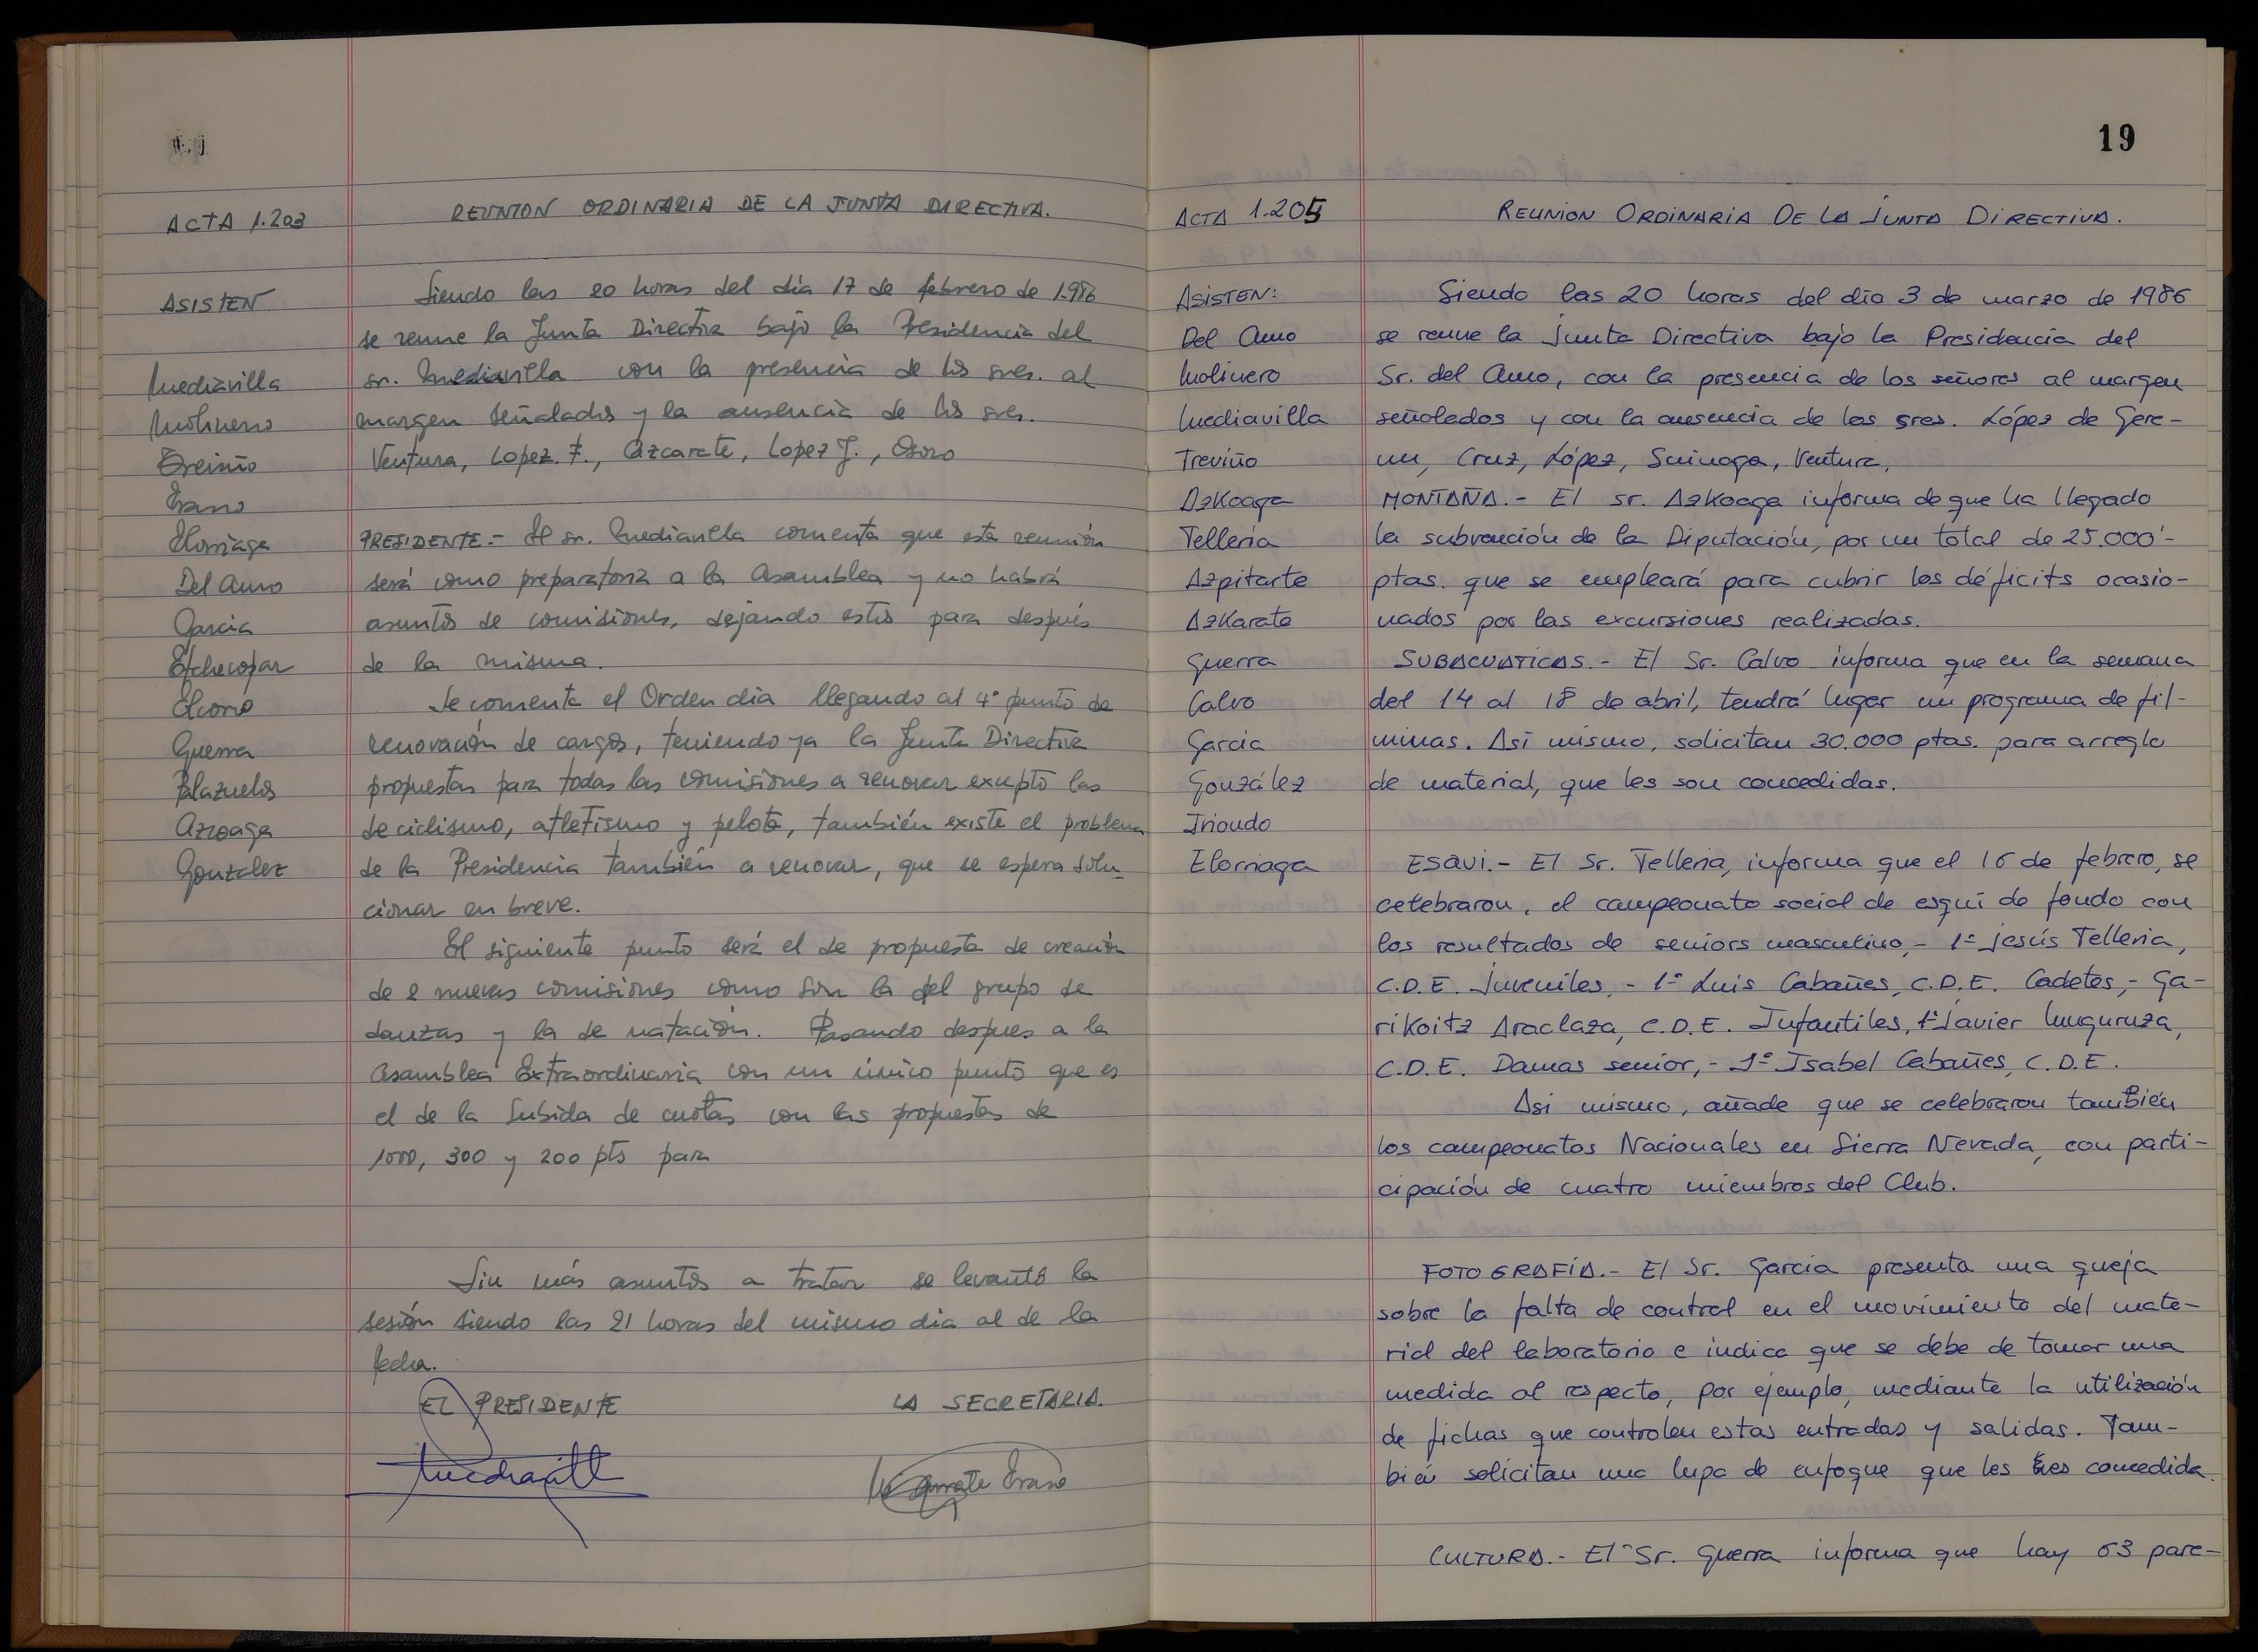 ACTA 1.203
REUNION ORDINARIA DE LA JUNTA DIRECTIVA.
ASISTEN
Mediavilla
Molinero
Treviño
Erano
Elorriaga
Del Amo
Garcia
Etchecopar
Guerra
Palazuelos
Azcoaga
Gonzalez
Siendo las 20 horas del dia 17 de febrero de 1.986
se reune la Junta Directiva bajo la Presidencia del
sr. Mediavilla con la presencia de los sres. al
margen señalados y la ausencia de los sres.
Ventura, Lopez F., Azcarate, Lopez J., Osoro
PRESIDENTE.- El sr. Mediavilla comenta que esta reunión
será como preparatoria a la Asamblea y no habrá
asuntos de comisiones, dejando estos para después
de la misma.
Se comenta el Orden dia llegando al 4º punto de
renovación de cargos, teniendo ya la Junta Directiva
propuestas para todas las comisiones a renovar excepto las
de ciclismo, atletismo y pelota, también existe el problema
de la Presidencia también a renovar, que se espera solu-
cionar en breve.
El siguiente punto será el de propuesta de creación
de 2 nuevas comisiones como son la del grupo de
danzas y la de natación. Pasando despues a la
Asamblea Extraordinaria con un único punto que es
el de la Subida de cuotas con las propuestas de
1000, 300 y 200 pts para
Sin más asuntos a tratar se levantó la
sesión siendo las 21 horas del mismo dia al de la
fecha.
EL PRESIDENTE LA SECRETARIA.
19
ACTA 1.205
REUNION ORDINARIA DE LA JUNTA DIRECTIVA.
ASISTEN:
Del Amo
Molinero
Mediavilla
Treviño
Azkoaga
Telleria
Azpitarte
Azkarate
Guerra
Calvo
Garcia
González
Iriondo
Elorriaga
Siendo las 20 horas del dia 3 de marzo de 1986
se reune la Junta Directiva bajo la Presidencia del
Sr. del Amo, con la presencia de los señores al margen
señalados y con la ausencia de los sres. López de Gere-
nu, Cruz, López, Suinaga, Ventura,
MONTAÑA.- El sr. Azkoaga informa de que ha llegado
la subvención de la Diputación, por un total de 25.000'-
ptas. que se empleará para cubrir los déficits ocasio-
nados por las excursiones realizadas.
SUBACUATICAS.- El Sr. Calvo informa que en la semana
del 14 al 18 de abril, tendrá lugar un programa de fil-
minas. Asi mismo, solicitan 30.000 ptas. para arreglo
de material, que les son concedidas.
ESQUI.- El Sr. Telleria, informa que el 16 de febrero, se
celebraron, el campeonato social de esquí de fondo con
los resultados de seniors masculino,- 1º Jesús Telleria,
C.D.E. Juveniles,- 1º Luis Cabañes, C.D.E. Cadetes,- Ga-
rikoitz Araclaza, C.D.E. Infantiles, 1º Javier Muguruza,
C.D.E. Damas senior,- 1º Isabel Cabañes, C.D.E.
Asi mismo, añade que se celebraron también
los campeonatos Nacionales en Sierra Nevada, con parti-
cipación de cuatro miembros del Club.
FOTOGRAFIA.- El Sr. Garcia presenta una queja
sobre la falta de control en el movimiento del mate-
rial del laboratorio e indica que se debe de tomar una
medida al respecto, por ejemplo, mediante la utilización
de fichas que controlen estas entradas y salidas. Tam-
bién solicitan una lupa de enfoque que les es concedida.
CULTURA.- El Sr. Guerra informa que hay 63 pare-